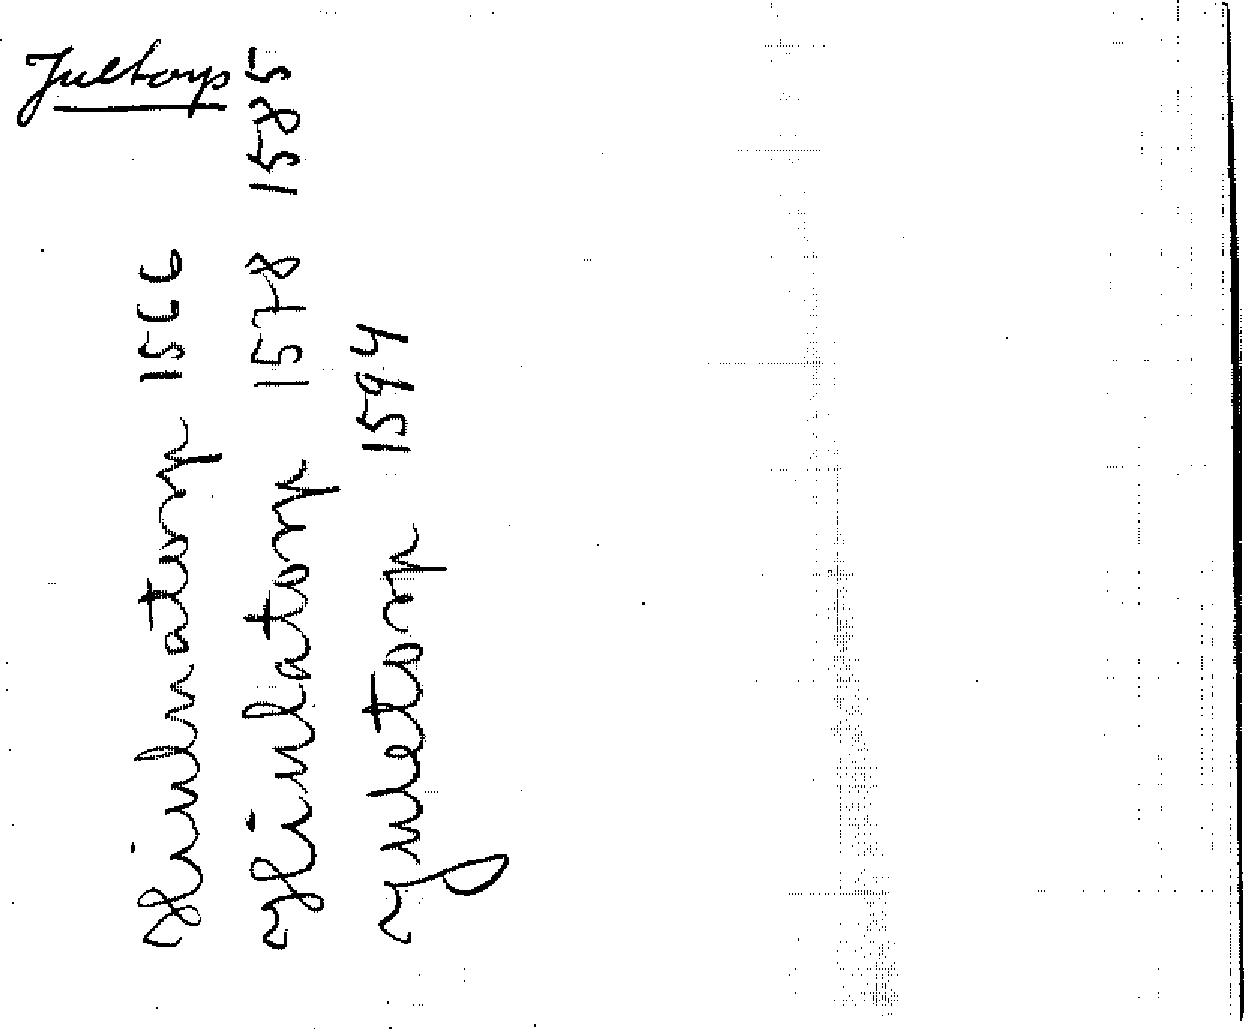 Jultorp
Hiulnatorp 1566
Hiulatorp 1578 1585
Juletorp 1594